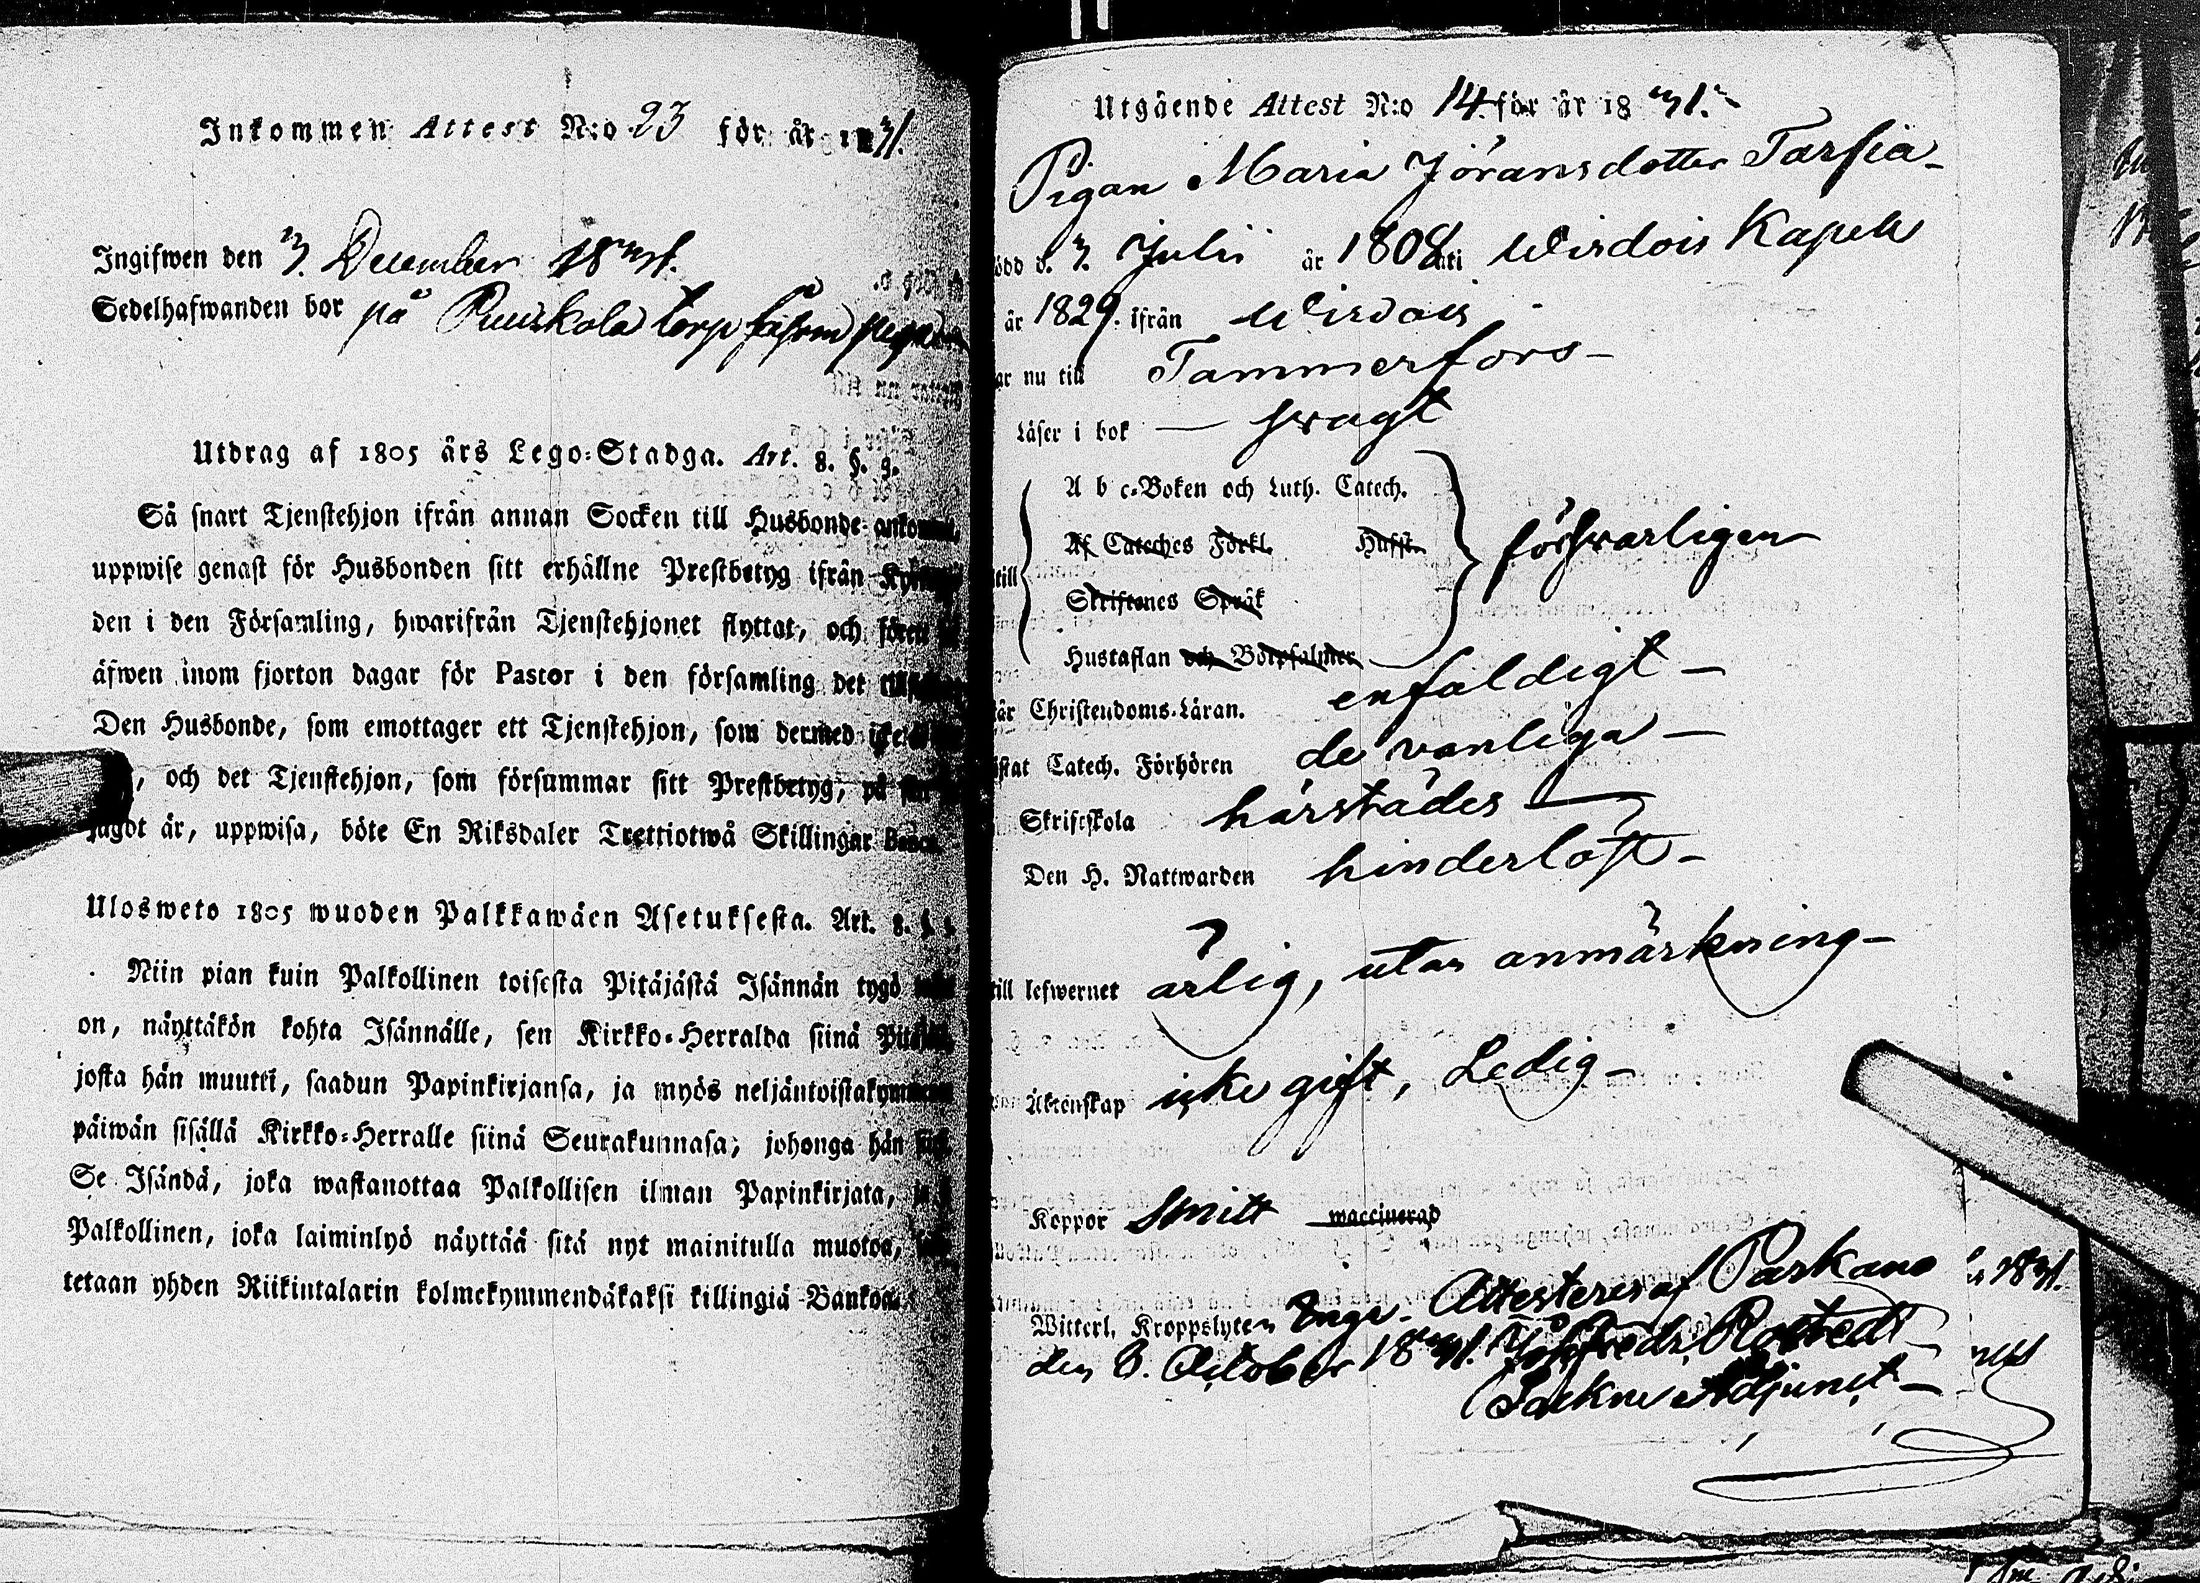 Inkommen Attest N:o 23 för år 1831.
Ingifwen den 3. December 1831.
Sedelhafwanden bor på Ruuskola torp såsom piga
Utdrag af 1805 års Lego-Stadga. Art. 8. §. 9.
Så snart Tjenstehjon ifrån annan Socken till Husbonde ankommit,
uppwise genast för Husbonden sitt erhållne Prestbetyg ifrån
den i den Församling, hwarifrån Tjenstehjonet flyttat, och
äfwen inom fjorton dagar för Pastor i den församling det
Den Husbonde, som emottager ett Tjenstehjon, som dermed icke
, och det Tjenstehjon, som försummar sitt Prestbetyg, på
sagdt är, uppwisa, böte En Riksdaler Trettiotwå Skillingar Banco.
Ulosweto 1805 wuoden Palkkawäen Asetuksesta. Art. 8. §.
Niin pian kuin Palkollinen toisesta Pitäjästä Isännän tygö
on, näyttäkön kohta Isännälle, sen Kirkko-Herralda siinä
josta hän muutti, saadun Papinkirjansa, ja myös neljäntoistakymmenen
päiwän sisällä Kirkko-Herralle siinä Seurakunnasa, johonga hän
Se Isändä, joka wastanottaa Palkollisen ilman Papinkirjata, ja
Palkollinen, joka laiminlyö näyttää sitä nyt mainitulla muotoa,
tetaan yhden Riikintalarin kolmekymmendäkaksi killingiä Bankoa
Utgående Attest N:o 14. för år 1831.
Pigan Maria Jöransdotter Tarsia
född d. 3. Julii år 1808 uti Wirdois Kapell
år 1829. ifrån Wirdois
ar nu till Tammerfors
Läser i bok swagt
A b c-Boken och Luth. Catech.
Af Cateches Förkl. Hufst.
till försvarligen
Skriftenes Språk
Hustaflan och Botpsalmer
Christendoms-Läran. enfaldigt
Catech. Förhören de vanliga
Skriftskola härstädes
Den H. Nattwarden hinderlöst
till lefwernet ärlig, utan anmärkning
Äktenskap icke gift, Ledig
Koppor Smitt waccinerad
Witterl. Kroppslyten Inga. Attesteras af Parkano
den 3. October 1831. Joh. Fredr. Rostedt
Sockne Adjunct